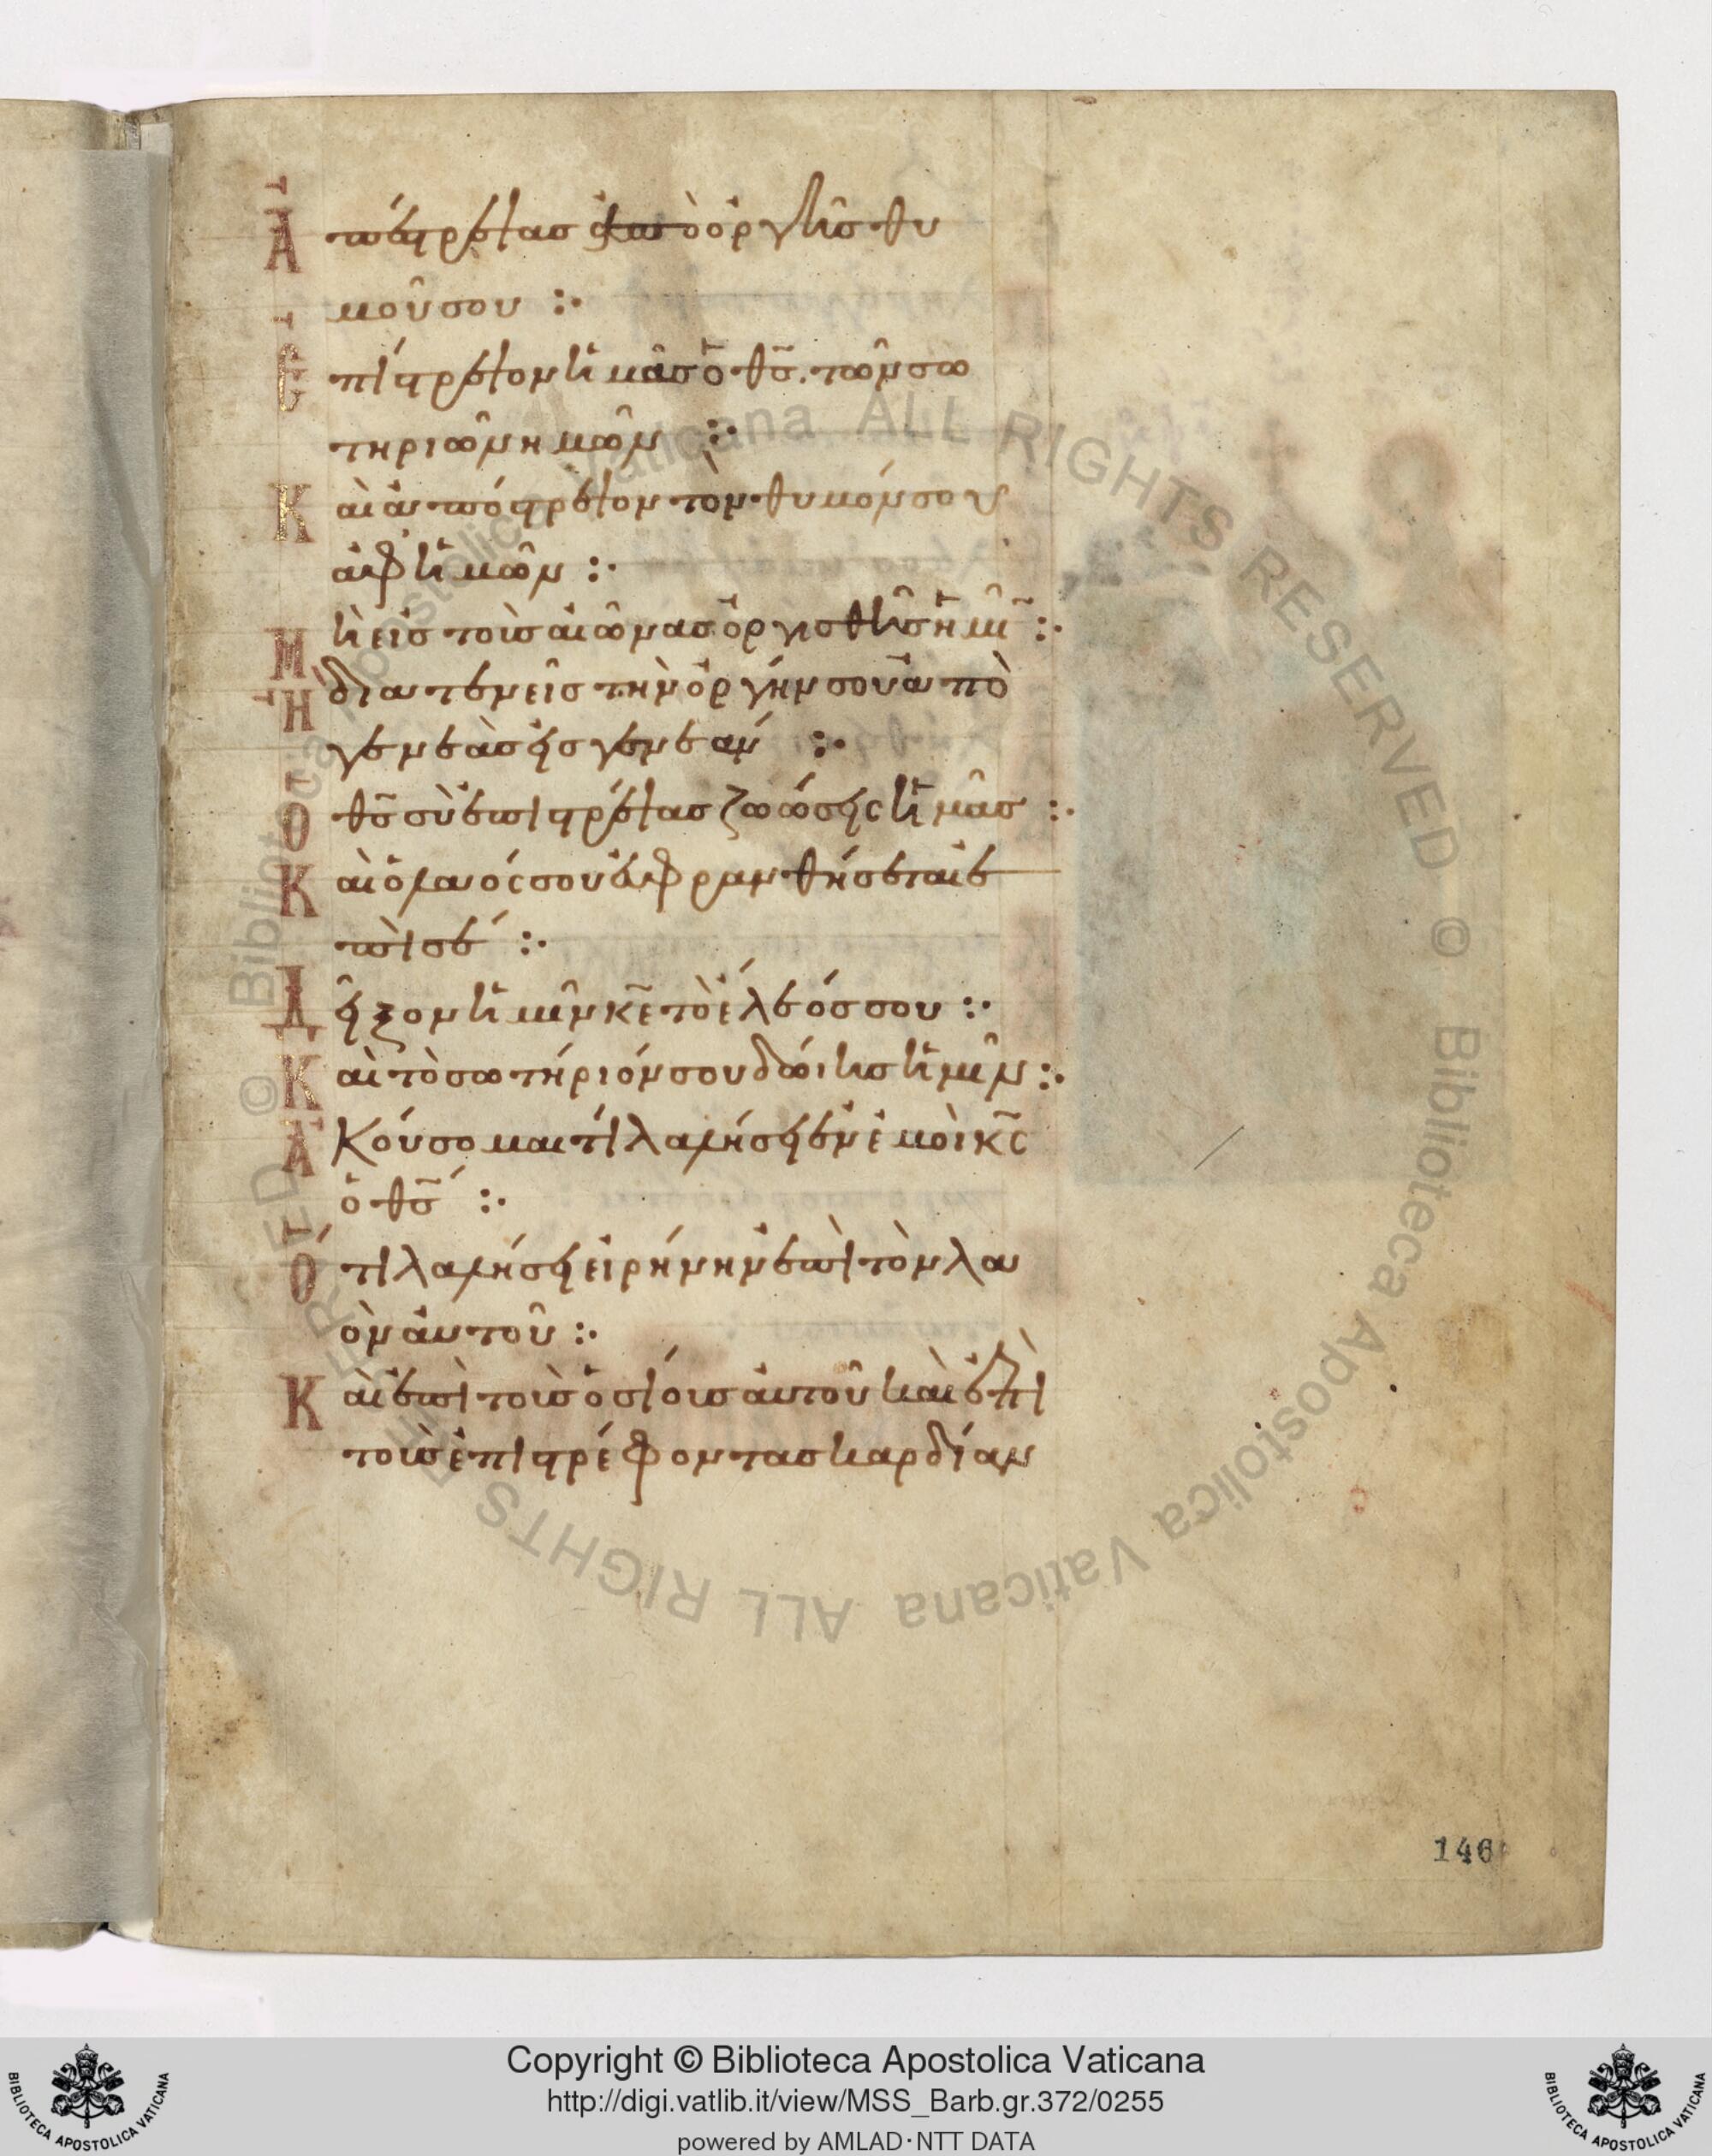 Ἀπέστρεψας ἀπὸ ὀργῆς θυ
μοῦ σου :·
Ἐπίστρεψον ἡμᾶς ὁ θ̅ς̅ τῶν σω
τηριῶν ἡμῶν :·
Καὶ ἀπόστρεψον τὸν θυμόν σου
ἀφ' ἡμῶν :·
Μὴ εἰς τοὺς αἰῶνας ὀργισθῇς ἡμῖ̅ :·
Ἢ διατενεῖς τὴν ὀργήν σου ἀπὸ
γενεὰς εἰς γενεάν :·
Ὁ θ̅ς̅ σὺ ἐπιστρέψας ζωώσεις ἡμᾶς :·
Καὶ ὁ λαός σου εὐφρανθήσεται ἐ
πὶ σέ :·
Δεῖξον ἡμῖν κ̅ε̅ τὸ ἔλεός σου :·
Καὶ τὸ σωτήριόν σου δώιης ἡμῖν :·
Ἀκούσομαι τί λαλήσει ἐν ἐμοὶ κ̅ς̅
ὁ θ̅ς̅ :·
Ὅτι λαλήσει εἰρήνην ἐπὶ τὸν λα
ὸν αὐτοῦ :·
Καὶ ἐπὶ τοὺς ὁσίους αὐτοῦ καὶ ἐπὶ
τοὺς ἐπιστρέφοντας καρδίαν
146
© Biblioteca Apostolica Vaticana ALL RIGHTS RESERVED © Biblioteca Apostolica Vaticana ALL RIGHTS RESERVED
BIBLIOTECA APOSTOLICA VATICANA
Copyright © Biblioteca Apostolica Vaticana
http://digi.vatlib.it/view/MSS_Barb.gr.372/0255
powered by AMLAD·NTT DATA
BIBLIOTECA APOSTOLICA VATICANA